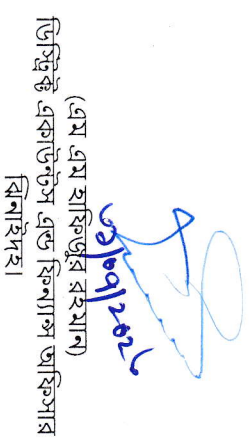 (এম এম হাফিজুর রহমান)
ডিস্ট্রিক্ট একাউন্টস এন্ড ফিন্যান্স অফিসার
ঝিনাইদহ।